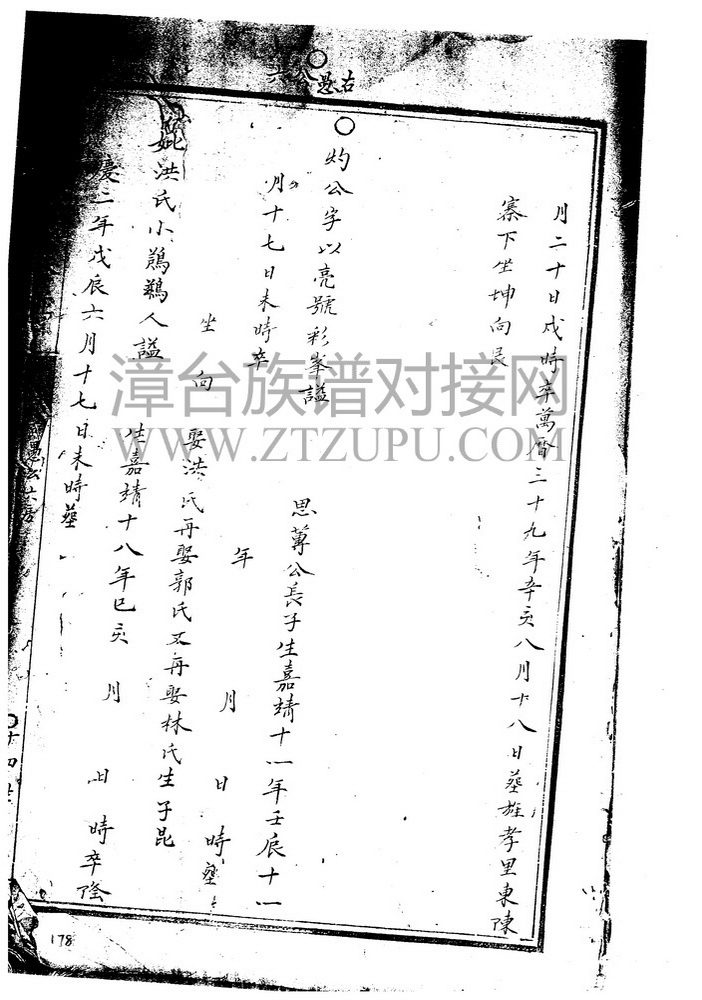 月二十日戌時卒萬曆三十九年辛亥八月十八日塟旌孝里東陳
寨下坐坤向艮
灼公字以亮號彩峯諡 思蓴公長子生嘉靖十一年壬辰十一
月十七日未時卒 年 月 日時塟
坐 向 娶洪氏再娶郭氏又再娶林氏生子昆
妣洪氏小鷓鷀人謚 生嘉靖十八年已亥 月 日 時卒隆
慶二年戊辰六月十七日未時塟
十四世
漳台族谱对接网
WWW.ZTZUPU.COM
178